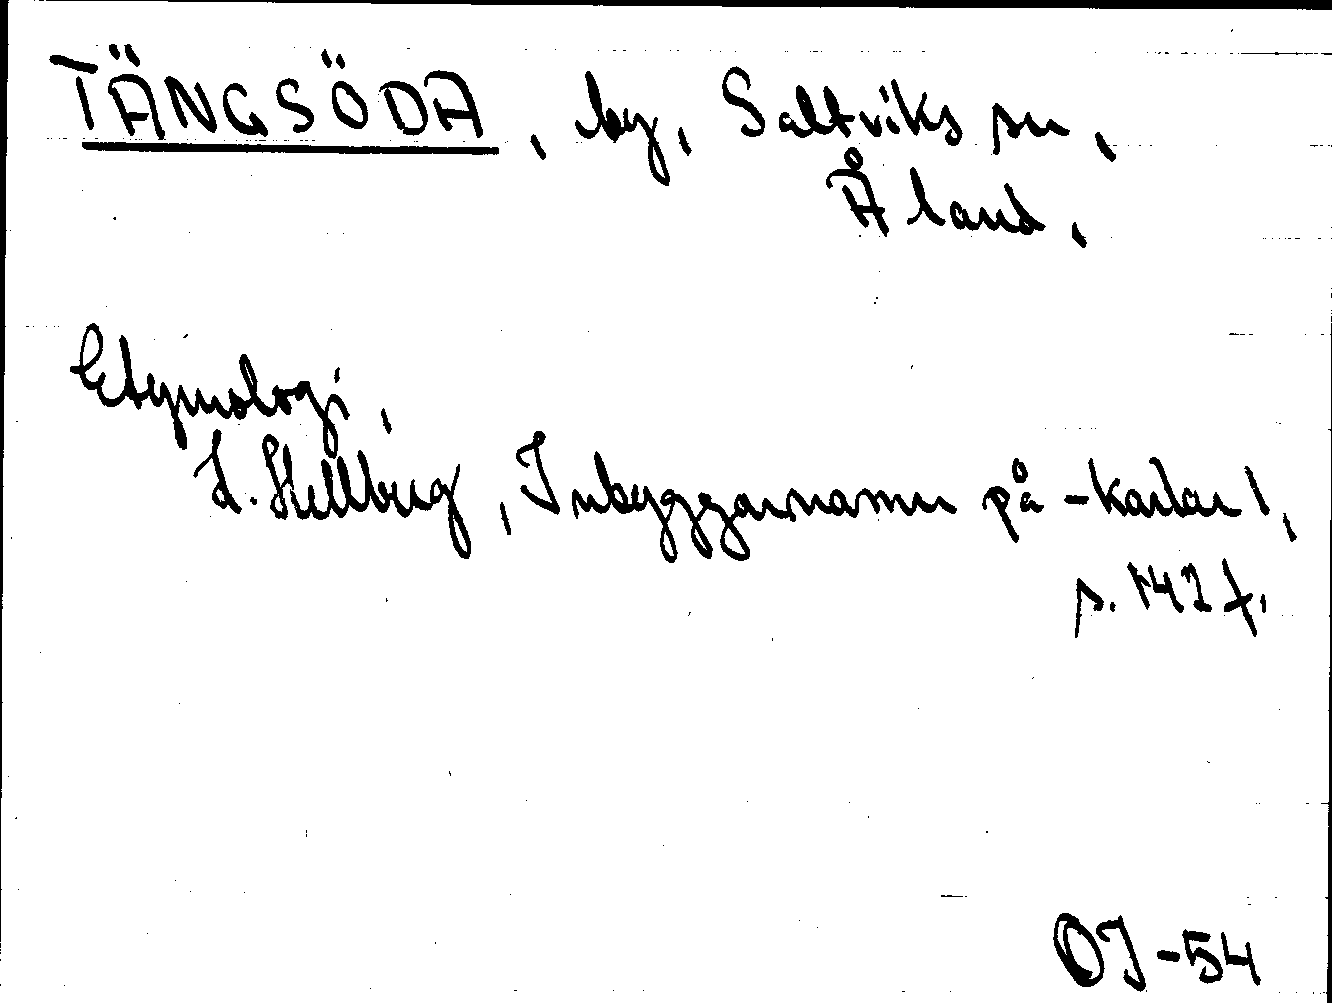 TÄNGSÖDA, by, Saltviks sn,
Åland.
Etymologi,
L. Hellberg, Inbyggarnamn på -karlar,
s. 142 f.
OJ-54